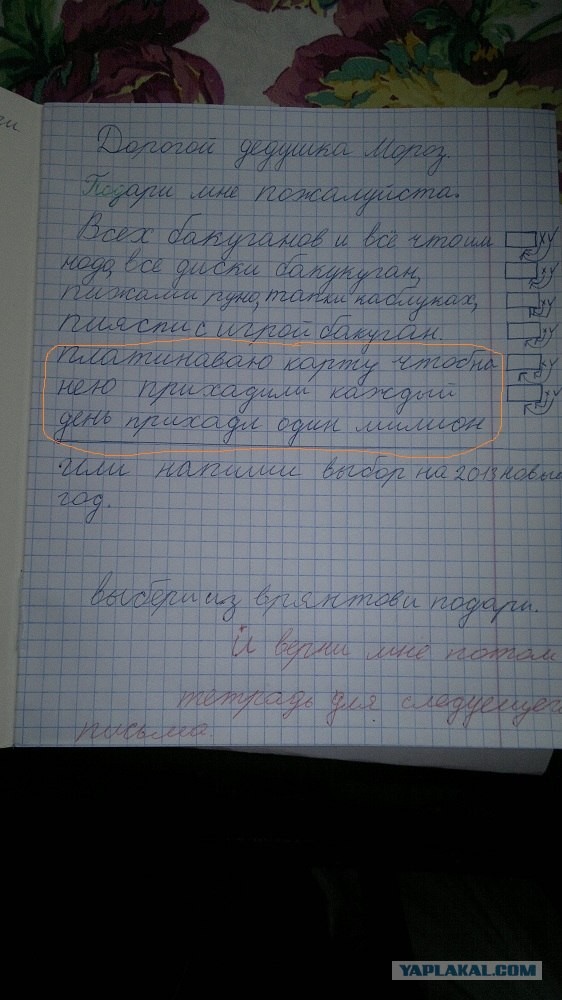 Дорогой дедушка Мороз.
Подари мне пожалуйста.
Всех бакуганов и всё что и м
нода, все диски бакукуган,
пижами руно, тапки на блуках,
пияспи с игрой бакуган.
платинаваю карту чтоб на
нею прихадили каждый
день прихадл один милион
или напиши выбор на 2013 новый
год.
выбери из врянтов и подари.
И верни мне потом
тетрадь для следуещего
письма.
YAPLAKAL.COM